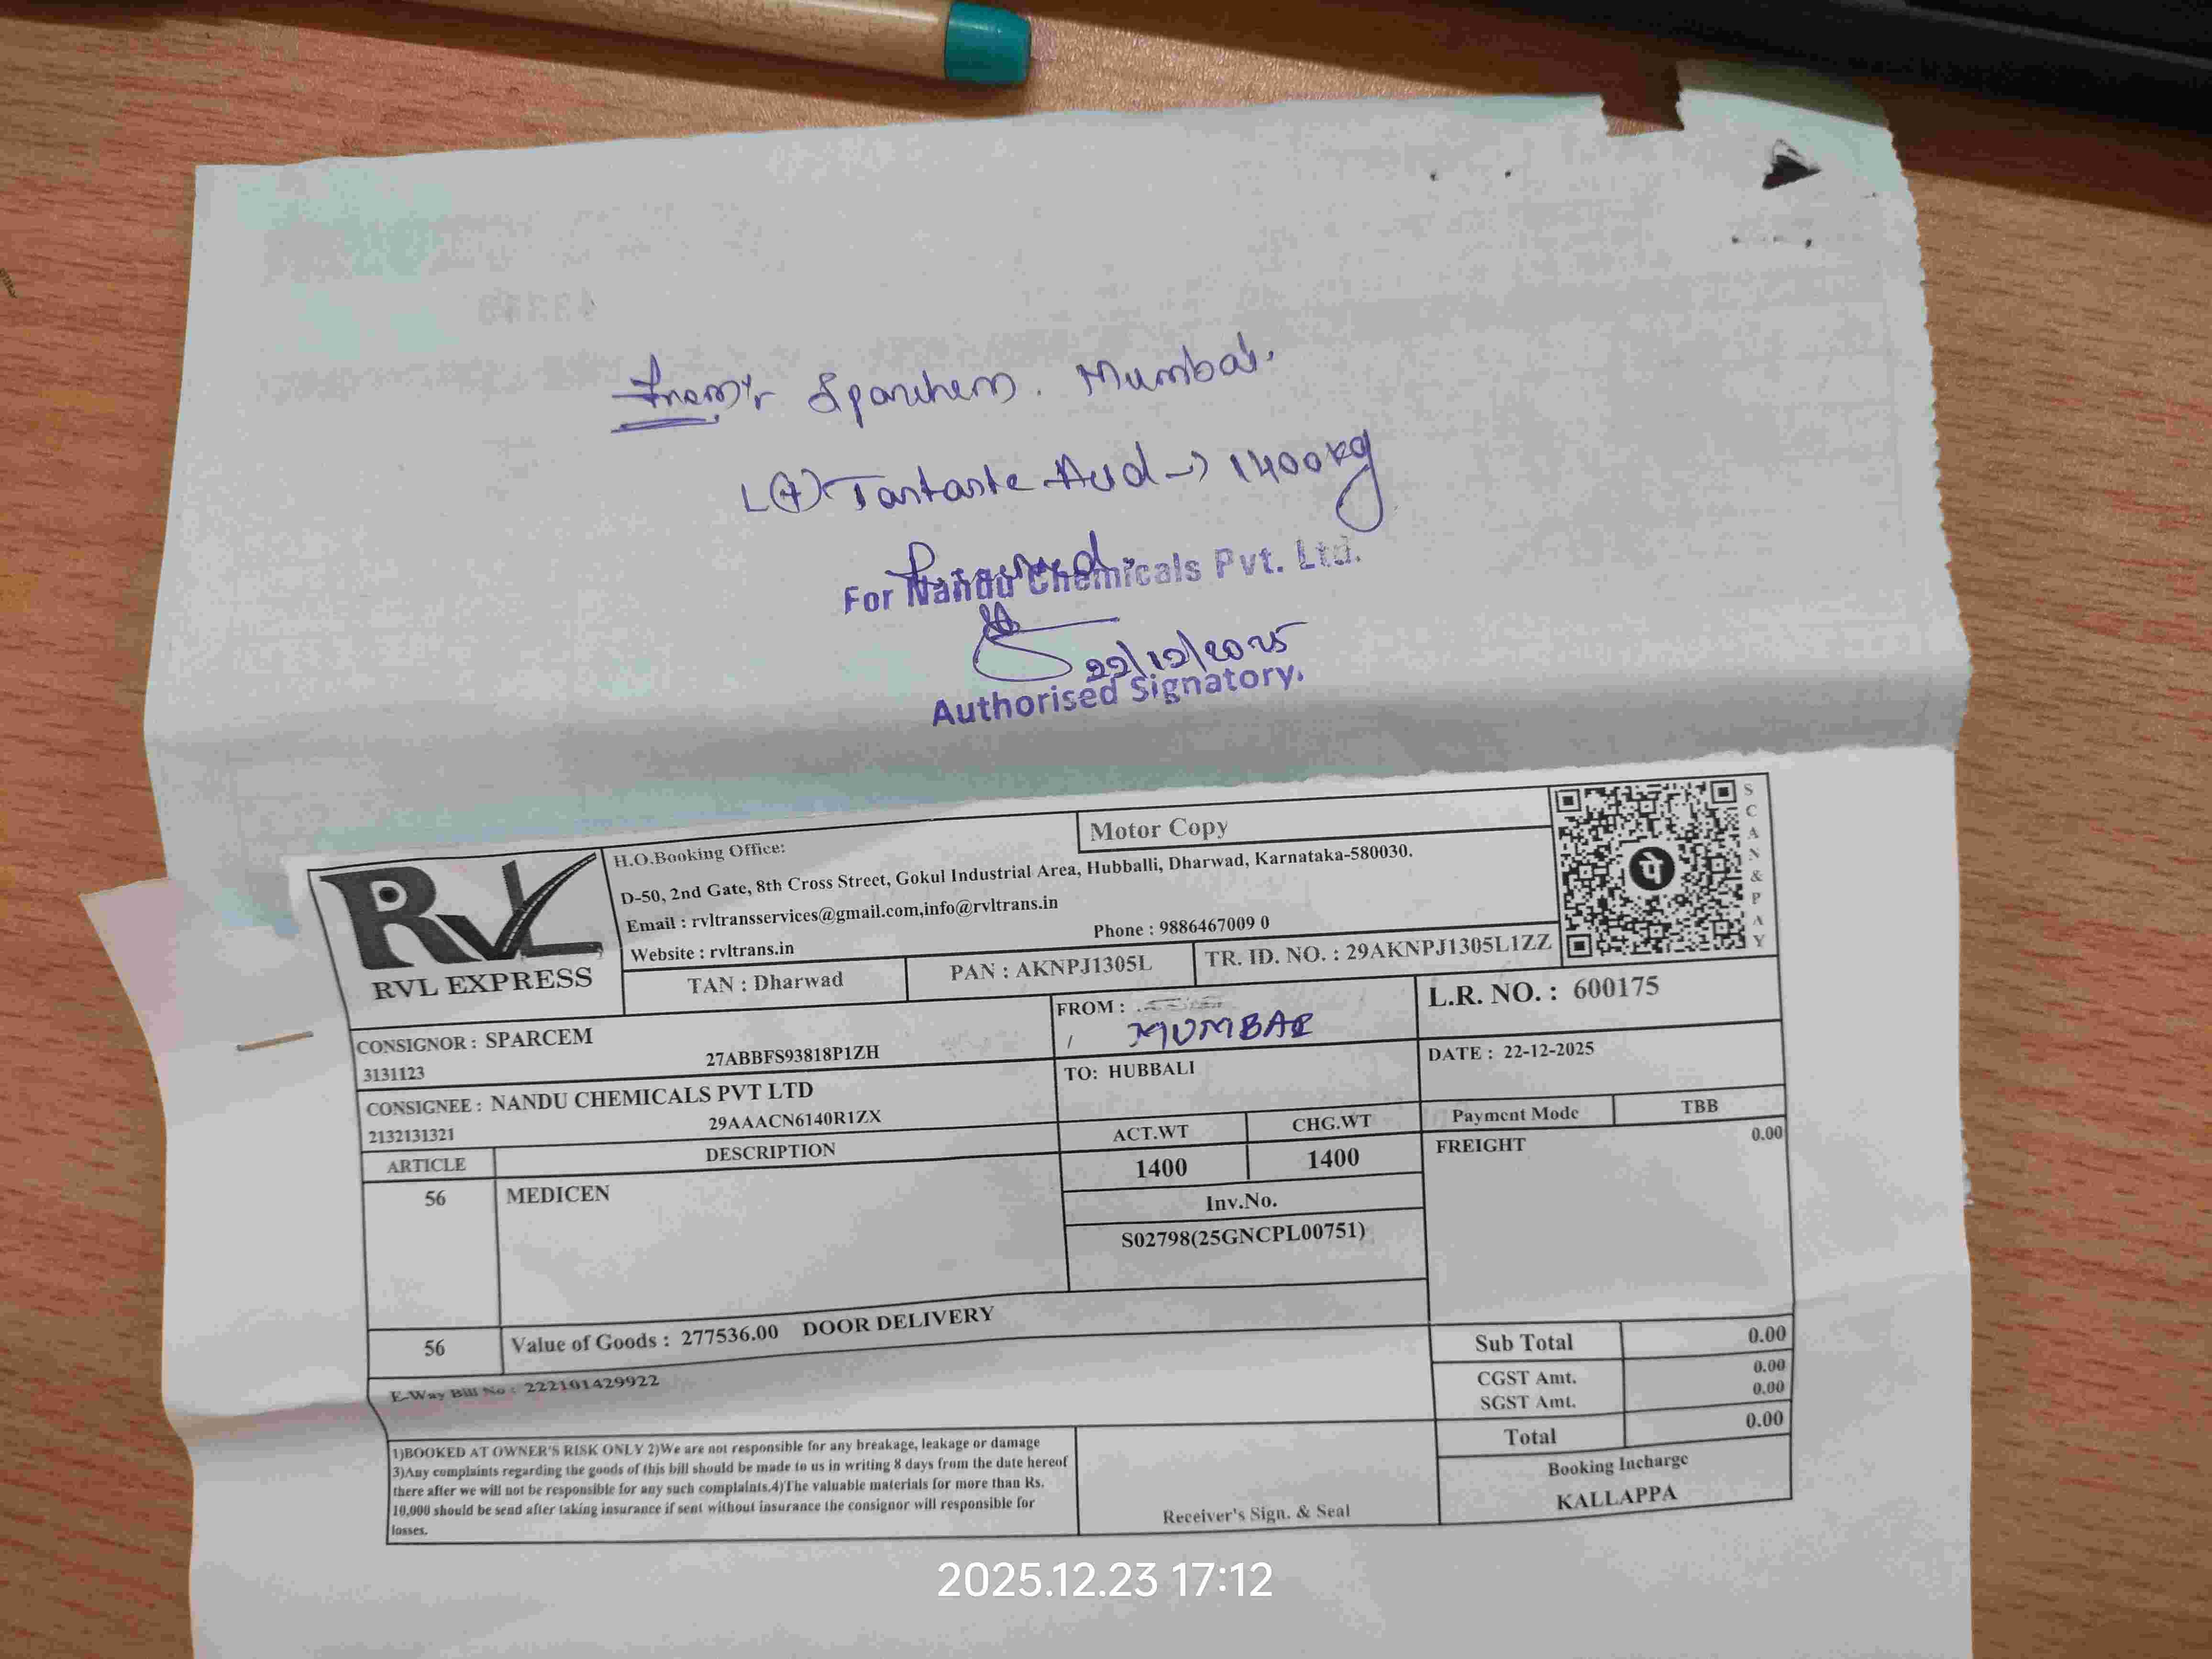 From:- Sparchem. Mumbai.
L(+) Tartaric Acid → 1400 kg
Received.
For Nandu Chemicals Pvt. Ltd.
22/12/2025
Authorised Signatory.
Motor Copy
H.O.Booking Office:
D-50, 2nd Gate, 8th Cross Street, Gokul Industrial Area, Hubballi, Dharwad, Karnataka-580030.
Email : rvltransservices@gmail.com,info@rvltrans.in
Phone : 9886467009 0
Website : rvltrans.in
RVL
RVL EXPRESS
TAN : Dharwad
PAN : AKNPJ1305L
TR. ID. NO. : 29AKNPJ1305L1ZZ
SCAN & PAY
पे
CONSIGNOR : SPARCEM
27ABBFS93818P1ZH
3131123
FROM :
/ MUMBAI
L.R. NO. : 600175
CONSIGNEE : NANDU CHEMICALS PVT LTD
29AAACN6140R1ZX
2132131321
TO: HUBBALI
DATE : 22-12-2025
ARTICLE
DESCRIPTION
ACT.WT
CHG.WT
Payment Mode
TBB
56
MEDICEN
1400
1400
FREIGHT
0.00
Inv.No.
S02798(25GNCPL00751)
56
Value of Goods : 277536.00 DOOR DELIVERY
Sub Total
0.00
E-Way Bill No : 222101429922
CGST Amt.
0.00
SGST Amt.
0.00
Total
0.00
1)BOOKED AT OWNER'S RISK ONLY 2)We are not responsible for any breakage, leakage or damage
3)Any complaints regarding the goods of this bill should be made to us in writing 8 days from the date hereof
there after we will not be responsible for any such complaints.4)The valuable materials for more than Rs.
10,000 should be send after taking insurance if sent without insurance the consignor will responsible for
losses.
Receiver's Sign. & Seal
Booking Incharge
KALLAPPA
2025.12.23 17:12